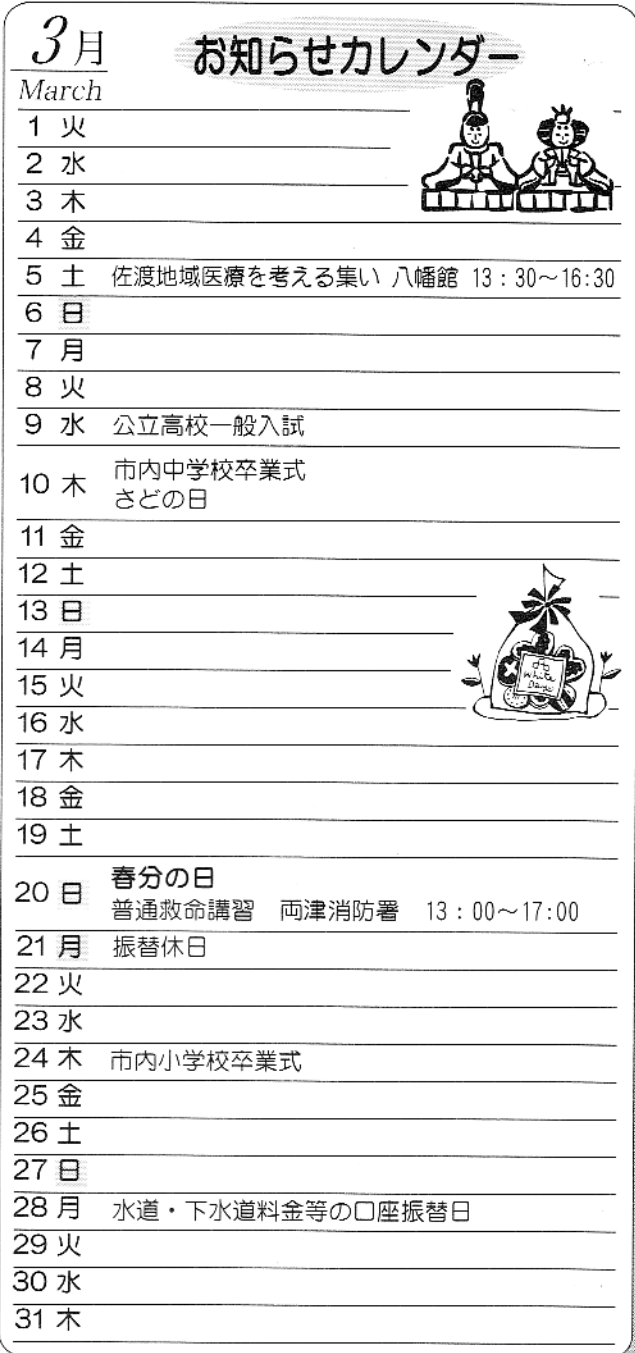 3月 お知らせカレンダー
March
1 火
2 水
3 木
4 金
5 土 佐渡地域医療を考える集い 八幡館 13：30～16:30
6 日
7 月
8 火
9 水 公立高校一般入試
10 木 市内中学校卒業式
さどの日
11 金
12 土
13 日
14 月
15 火
16 水
17 木
18 金
19 土
20 日 春分の日
普通救命講習 両津消防署 13：00～17:00
21 月 振替休日
22 火
23 水
24 木 市内小学校卒業式
25 金
26 土
27 日
28 月 水道・下水道料金等の口座振替日
29 火
30 水
31 木